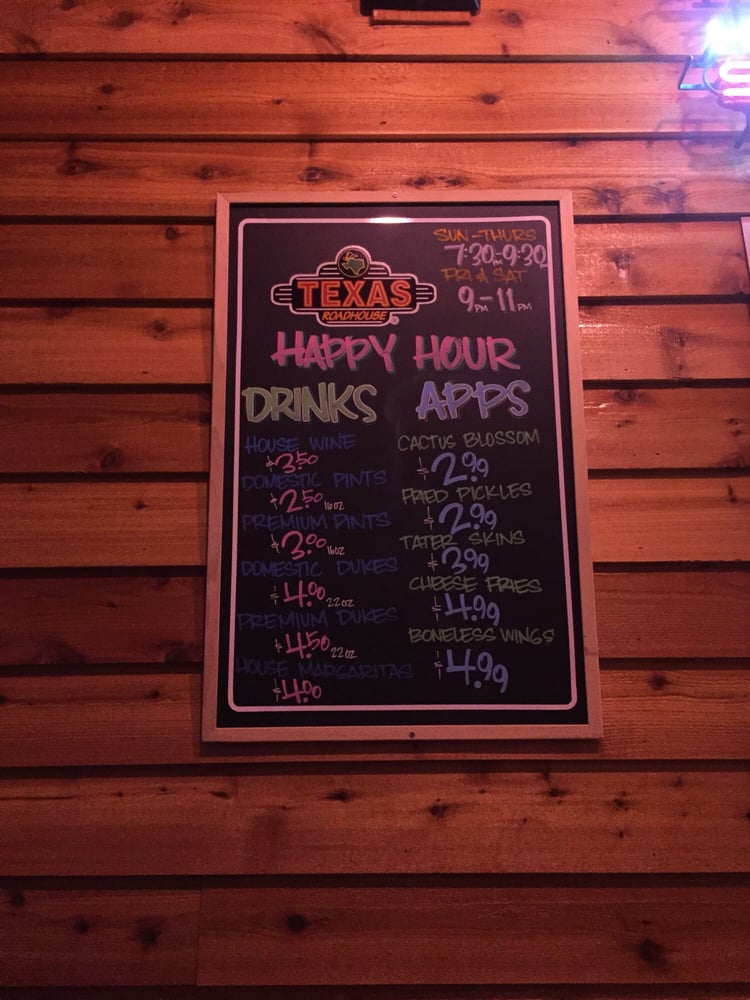 SUN-THURS
7:30PM-9:30PM
FRI & SAT
9PM-11PM
TEXAS
ROADHOUSE
HAPPY HOUR
DRINKS
HOUSE WINE
$3.50
DOMESTIC PINTS
$2.50 16oz
PREMIUM PINTS
$3.00 16oz
DOMESTIC DUKES
$4.00 22oz
PREMIUM DUKES
$4.50 22oz
HOUSE MARGARITAS
$4.00
APPS
CACTUS BLOSSOM
$2.99
FRIED PICKLES
$2.99
TATER SKINS
$3.99
CHEESE FRIES
$4.99
BONELESS WINGS
$4.99